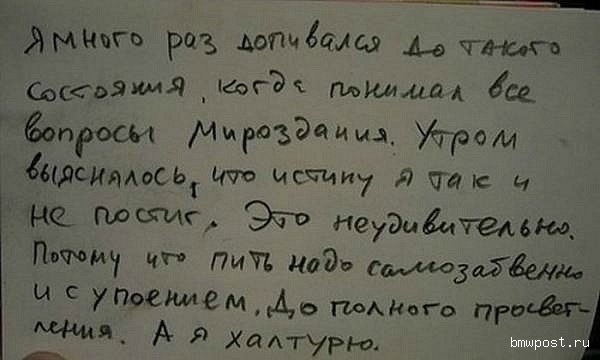 Я много раз допивался до такого
состояния, когда понимал все
вопросы Мироздания. Утром
выяснялось, что истину я так и
не постиг. Это неудивительно.
Потому что пить надо самозабвенно
и с упоением. До полного просвет-
ления. А я халтурю.
bmwpost.ru